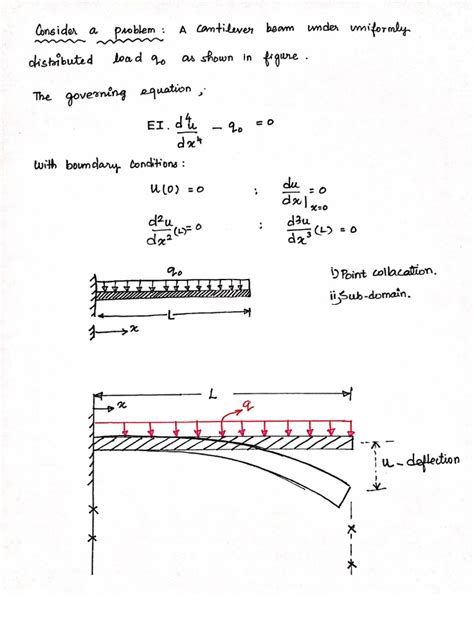 Consider a problem : A cantilever beam under uniformly
distributed load q₀ as shown in figure.
The governing equation,
EI. d⁴u/dx⁴ - q₀ = 0
With boundary conditions :
u(0) = 0 ; du/dx|ₓ₌₀ = 0
d²u/dx² (L) = 0 ; d³u/dx³ (L) = 0
q₀
i) Point collacation.
ii) Sub-domain.
L
x
L
x
q
u - deflection